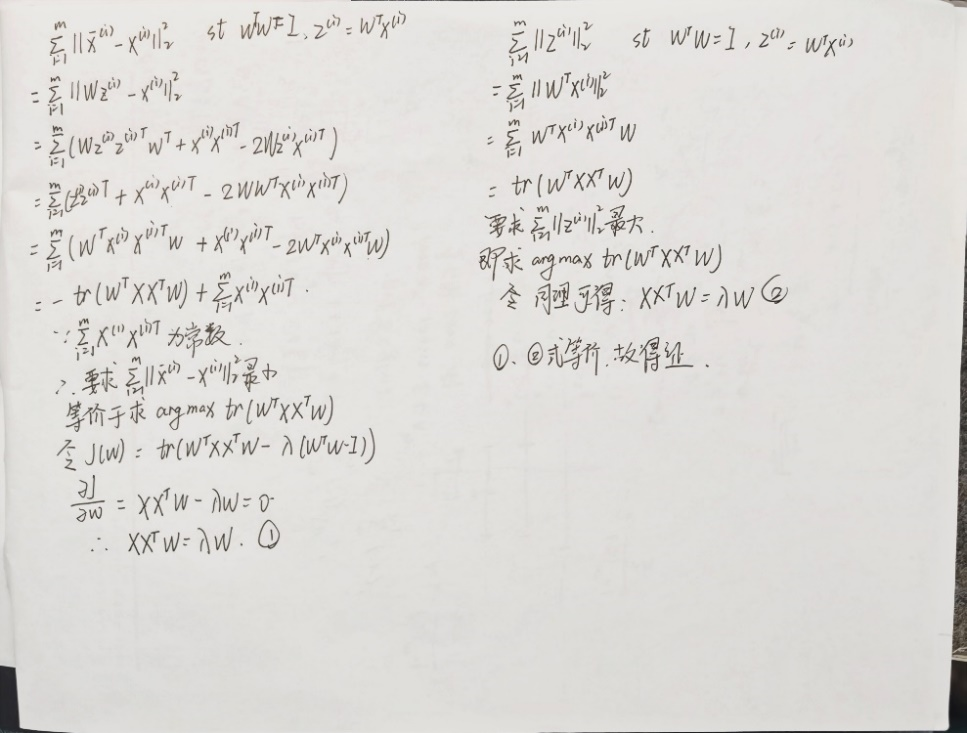 ∑_{i=1}^{m} ||x̄^{(i)} - x^{(i)}||_2^2 st W^TW=I, z^{(i)} = W^T x^{(i)}
= ∑_{i=1}^{m} ||Wz^{(i)} - x^{(i)}||_2^2
= ∑_{i=1}^{m} (Wz^{(i)}z^{(i)T}W^T + x^{(i)}x^{(i)T} - 2Wz^{(i)}x^{(i)T})
= ∑_{i=1}^{m} (z^{(i)}z^{(i)T} + x^{(i)}x^{(i)T} - 2WW^Tx^{(i)}x^{(i)T})
= ∑_{i=1}^{m} (W^Tx^{(i)}x^{(i)T}W + x^{(i)}x^{(i)T} - 2W^Tx^{(i)}x^{(i)T}W)
= - tr(W^TXX^TW) + ∑_{i=1}^{m} x^{(i)}x^{(i)T}.
∵ ∑_{i=1}^{m} x^{(i)}x^{(i)T} 为常数.
∴ 要求 ∑_{i=1}^{m} ||x̄^{(i)} - x^{(i)}||_2^2 最小
等价于求 argmax tr(W^TXX^TW)
令 J(W) = tr(W^TXX^TW - λ(W^TW-I))
∂J/∂W = XX^TW - λW = 0
∴ XX^TW = λW. ①
∑_{i=1}^{m} ||z^{(i)}||_2^2 st W^TW=I, z^{(i)} = W^Tx^{(i)}
= ∑_{i=1}^{m} ||W^Tx^{(i)}||_2^2
= ∑_{i=1}^{m} W^Tx^{(i)}x^{(i)T}W
= tr(W^TXX^TW)
要求 ∑_{i=1}^{m} ||z^{(i)}||_2^2 最大.
即求 argmax tr(W^TXX^TW)
令 同理可得: XX^TW = λW ②
①、②式等价,故得证.